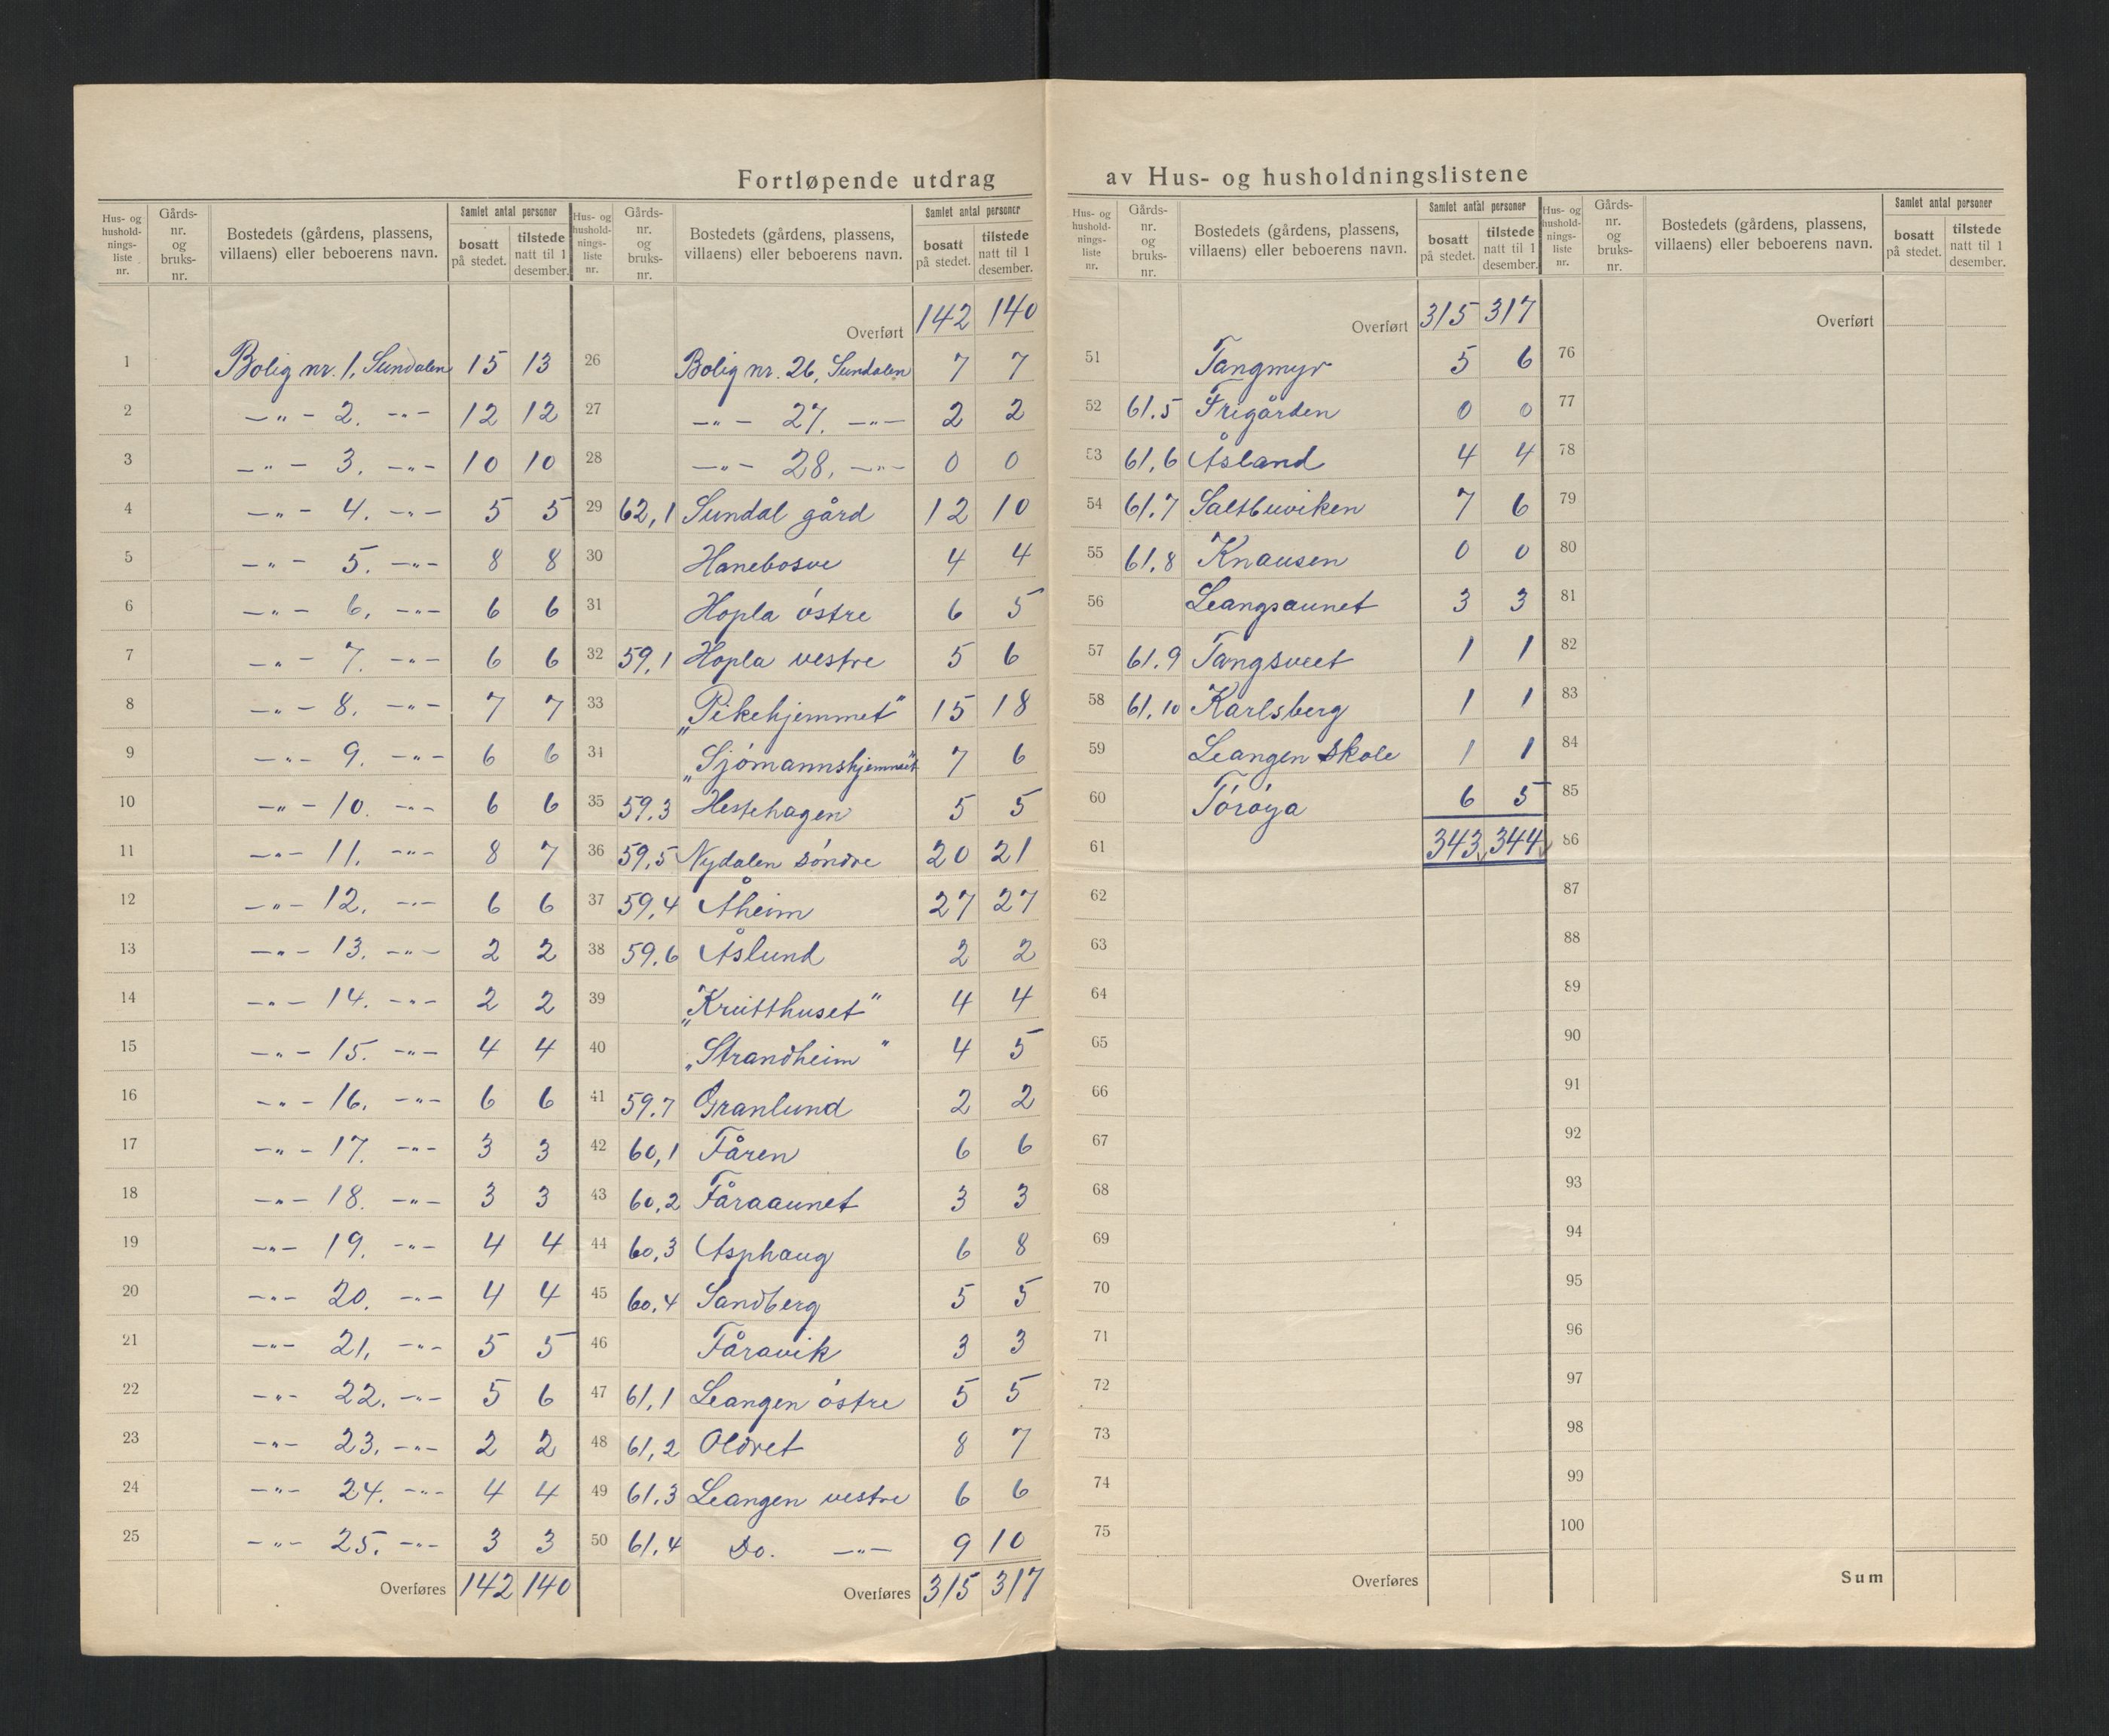 Fortløpende utdrag av Hus- og husholdningslistene
Hus- og hushold-nings-liste nr. | Gårds-nr. og bruks-nr. | Bostedets (gårdens, plassens, villaens) eller beboerens navn. | Samlet antal personer | bosatt på stedet. | tilstede natt til 1 desember.
1 Bolig nr. 1, Sundalen 15 13
2 —„— 2. —„— 12 12
3 —„— 3. —„— 10 10
4 —„— 4. —„— 5 5
5 —„— 5. —„— 8 8
6 —„— 6. —„— 6 6
7 —„— 7. —„— 6 6
8 —„— 8. —„— 7 7
9 —„— 9. —„— 6 6
10 —„— 10. —„— 6 6
11 —„— 11. —„— 8 7
12 —„— 12. —„— 6 6
13 —„— 13. —„— 2 2
14 —„— 14. —„— 2 2
15 —„— 15. —„— 4 4
16 —„— 16. —„— 6 6
17 —„— 17. —„— 3 3
18 —„— 18. —„— 3 3
19 —„— 19. —„— 4 4
20 —„— 20. —„— 4 4
21 —„— 21. —„— 5 5
22 —„— 22. —„— 5 6
23 —„— 23. —„— 2 2
24 —„— 24. —„— 4 4
25 —„— 25. —„— 3 3
Overføres 142 140
Hus- og hushold-nings-liste nr. | Gårds-nr. og bruks-nr. | Bostedets (gårdens, plassens, villaens) eller beboerens navn. | Samlet antal personer | bosatt på stedet. | tilstede natt til 1 desember.
Overført 142 140
26 Bolig nr. 26, Sundalen 7 7
27 —„— 27. —„— 2 2
28 —„— 28. —„— 0 0
29 62,1 Sundal gård 12 10
30 Hanebosve 4 4
31 Hopla östre 6 5
32 59,1 Hopla vestre 5 6
33 „Pikehjemmet" 15 18
34 „Sjömannshjemmet" 7 6
35 59.3 Hestehagen 5 5
36 59,5 Nydalen söndre 20 21
37 59,4 Åheim 27 27
38 59.6 Åslund 2 2
39 „Krutthuset" 4 4
40 „Strandheim" 4 5
41 59.7 Granlund 2 2
42 60,1 Fåren 6 6
43 60,2 Fåraaunet 3 3
44 60,3 Asphaug 6 8
45 60,4 Sandberg 5 5
46 Fåravik 3 3
47 61,1 Leangen östre 5 5
48 61,2 Oldret 8 7
49 61,3 Leangen vestre 6 6
50 61,4 Do. —„— 9 10
Overføres 315 317
Hus- og hushold-nings-liste nr. | Gårds-nr. og bruks-nr. | Bostedets (gårdens, plassens, villaens) eller beboerens navn. | Samlet antal personer | bosatt på stedet. | tilstede natt til 1 desember.
Overført 315 317
51 Tangmyr 5 6
52 61.5 Frigården 0 0
53 61,6 Åsland 4 4
54 61.7 Saltbuviken 7 6
55 61.8 Knausen 0 0
56 Leangsaunet 3 3
57 61.9 Tangsveet 1 1
58 61,10 Karlsberg 1 1
59 Leangen skole 1 1
60 Töröya 6 5
61 343 344
62
63
64
65
66
67
68
69
70
71
72
73
74
75
Overføres
Hus- og hushold-nings-liste nr. | Gårds-nr. og bruks-nr. | Bostedets (gårdens, plassens, villaens) eller beboerens navn. | Samlet antal personer | bosatt på stedet. | tilstede natt til 1 desember.
Overført
76
77
78
79
80
81
82
83
84
85
86
87
88
89
90
91
92
93
94
95
96
97
98
99
100
Sum